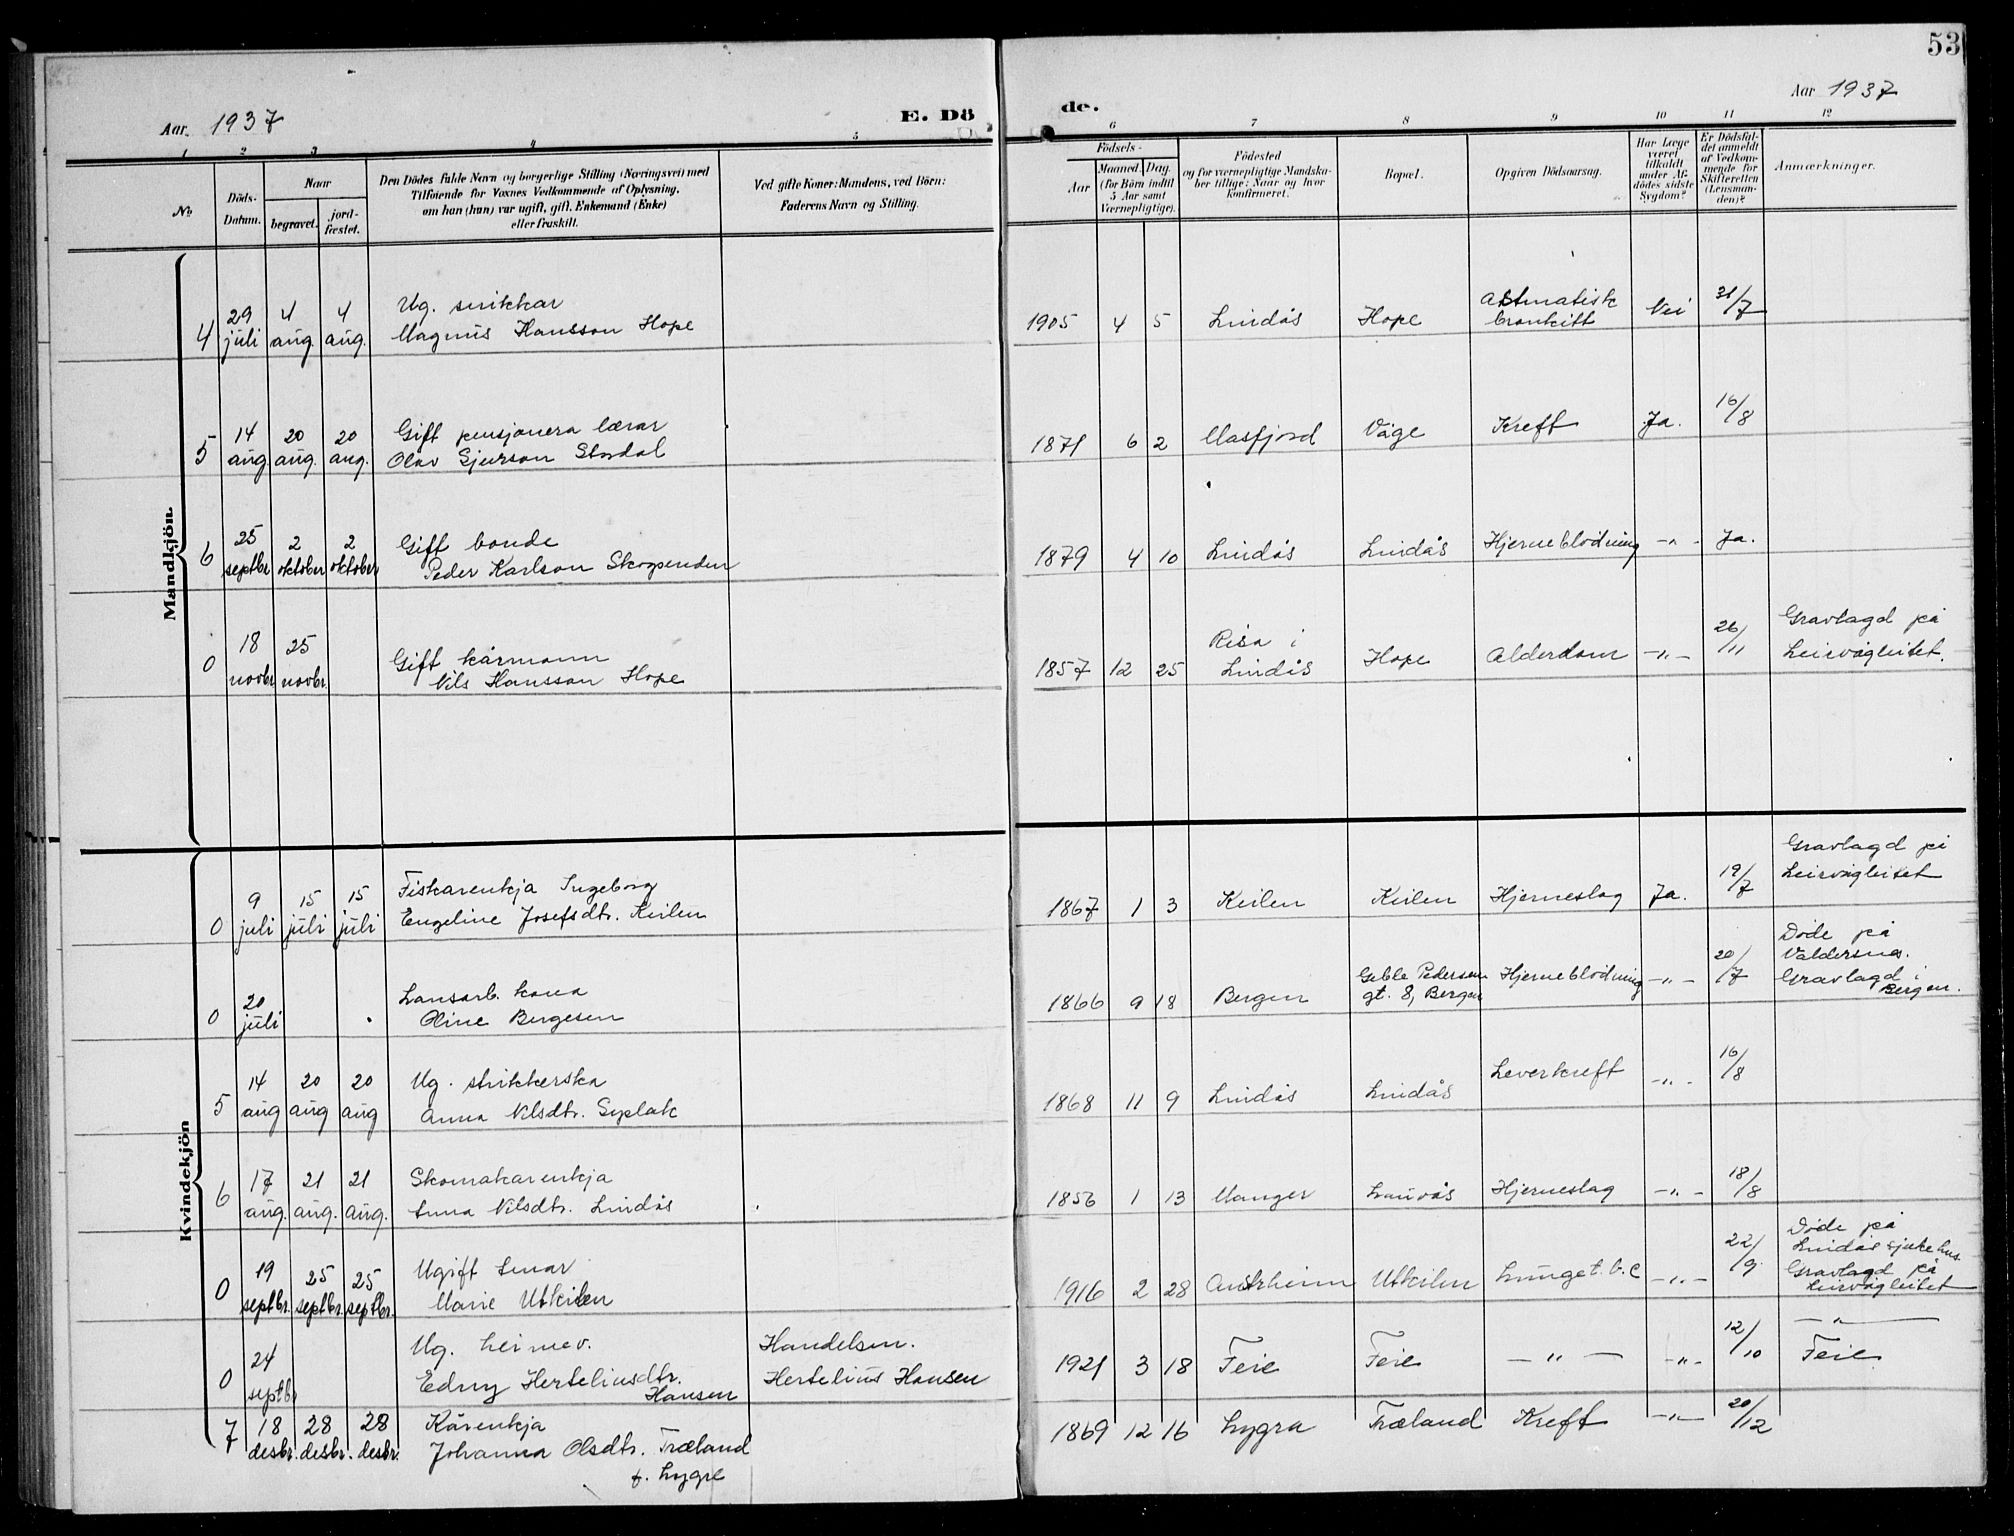 53
Aar 1937
E. Dö
de.
Aar 1937
1 2 3 4 5 6 7 8 9 10 11 12
No
Döds-Datum.
Naar
begravet.
jord-fæstet.
Den Dödes fulde Navn og borgerlige Stilling (Næringsvei) med
Tilföiende for Voxnes Vedkommende af Oplysning.
om han (hun) var ugift, gift, Enkemand (Enke)
eller fraskilt.
Ved gifte Koner: Mandens, ved Börn:
Faderens Navn og Stilling.
Födsels-
Aar
Maaned. Dag.
(for Börn indtil
5 Aar samt
Værnepligtige).
Födested
og for værnepligtige Mandska-
ber tillige: Naar og hvor
konfirmeret.
Bopæl.
Opgiven Dödsaarsag.
Har Læge
været
tilkaldt
under Af-
dödes sidste
Sygdom?
Er Dödsfal-
det anmeldt
af Vedkom-
mende for
Skifteretten
(Lensman-
den)?
Anmærkninger.
Mandkjön.
4 29 juli 4 aug. 4 aug.
Ug. snikkar
Magnus Hansson Hope
1905 4 5 Lindås Hope Astmatisk
bronkitt Nei 31/7
5 14 aug 20 aug. 20 aug.
Gift pensjonera lærar
Olav Gjerson Stordal
1871 6 2 Masfjord Våge Kreft Ja. 16/8
6 25 septbr 2 oktober 2 oktober
Gift bonde
Peder Karlson Skogenden
1879 4 10 Lindås Lindås Hjerneblödning -"- Ja.
0 18 novbr 25 novbr.
Gift kårmann
Nils Hansson Hope
1857 12 25 Risa i
Lindås Hope Alderdom -"- 26/11 Gravlagd på
Leirvågleitet.
Kvindekjön
0 9 juli 15 juli 15 juli
Fiskarenkja Ingeborg
Engeline Josefsdtr. Keilen
1867 1 3 Keilen Keilen Hjerneslag Ja. 19/7 Gravlagd på
Leirvågleitet
0 20 juli
Lausarb. kona
Oline Bergesen
1866 9 18 Bergen Geble Pedersen
gt. 8, Bergen Hjerneblödning -"- 20/7 Döde på
Valdersnes.
Gravlagd i
Bergen.
5 14 aug 20 aug 20 aug
Ug. strikkerska
Anna Nilsdtr. Syslak
1868 11 9 Lindås Lindås Leverkreft -"- 16/8
6 17 aug. 21 aug. 21 aug.
Skomakarenkja
Anna Nilsdtr. Lindås
1856 1 13 Manger Lindås Hjerneslag -"- 18/8
0 19 septbr. 25 septbr. 25 septbr.
Ugift tenar
Marie Utkilen
1916 2 28 Austrheim Utkilen Lunge t.b.c -"- 22/9 Döde på
Lindås sjukehus
Gravlagd på
Leirvågleitet
0 24 septbr
Ug. heimev.
Edny Herteliusdtr.
Hansen
Handelsm.
Hertelius Hansen
1921 3 18 Feie Feie -"- -"- 12/10 -"-
Feie
7 18 desbr. 28 desbr. 28 desbr.
Kårenkja
Johanna Olsdtr. Træland
f. Lygre
1869 12 16 Lygra Træland Kreft -"- 20/12